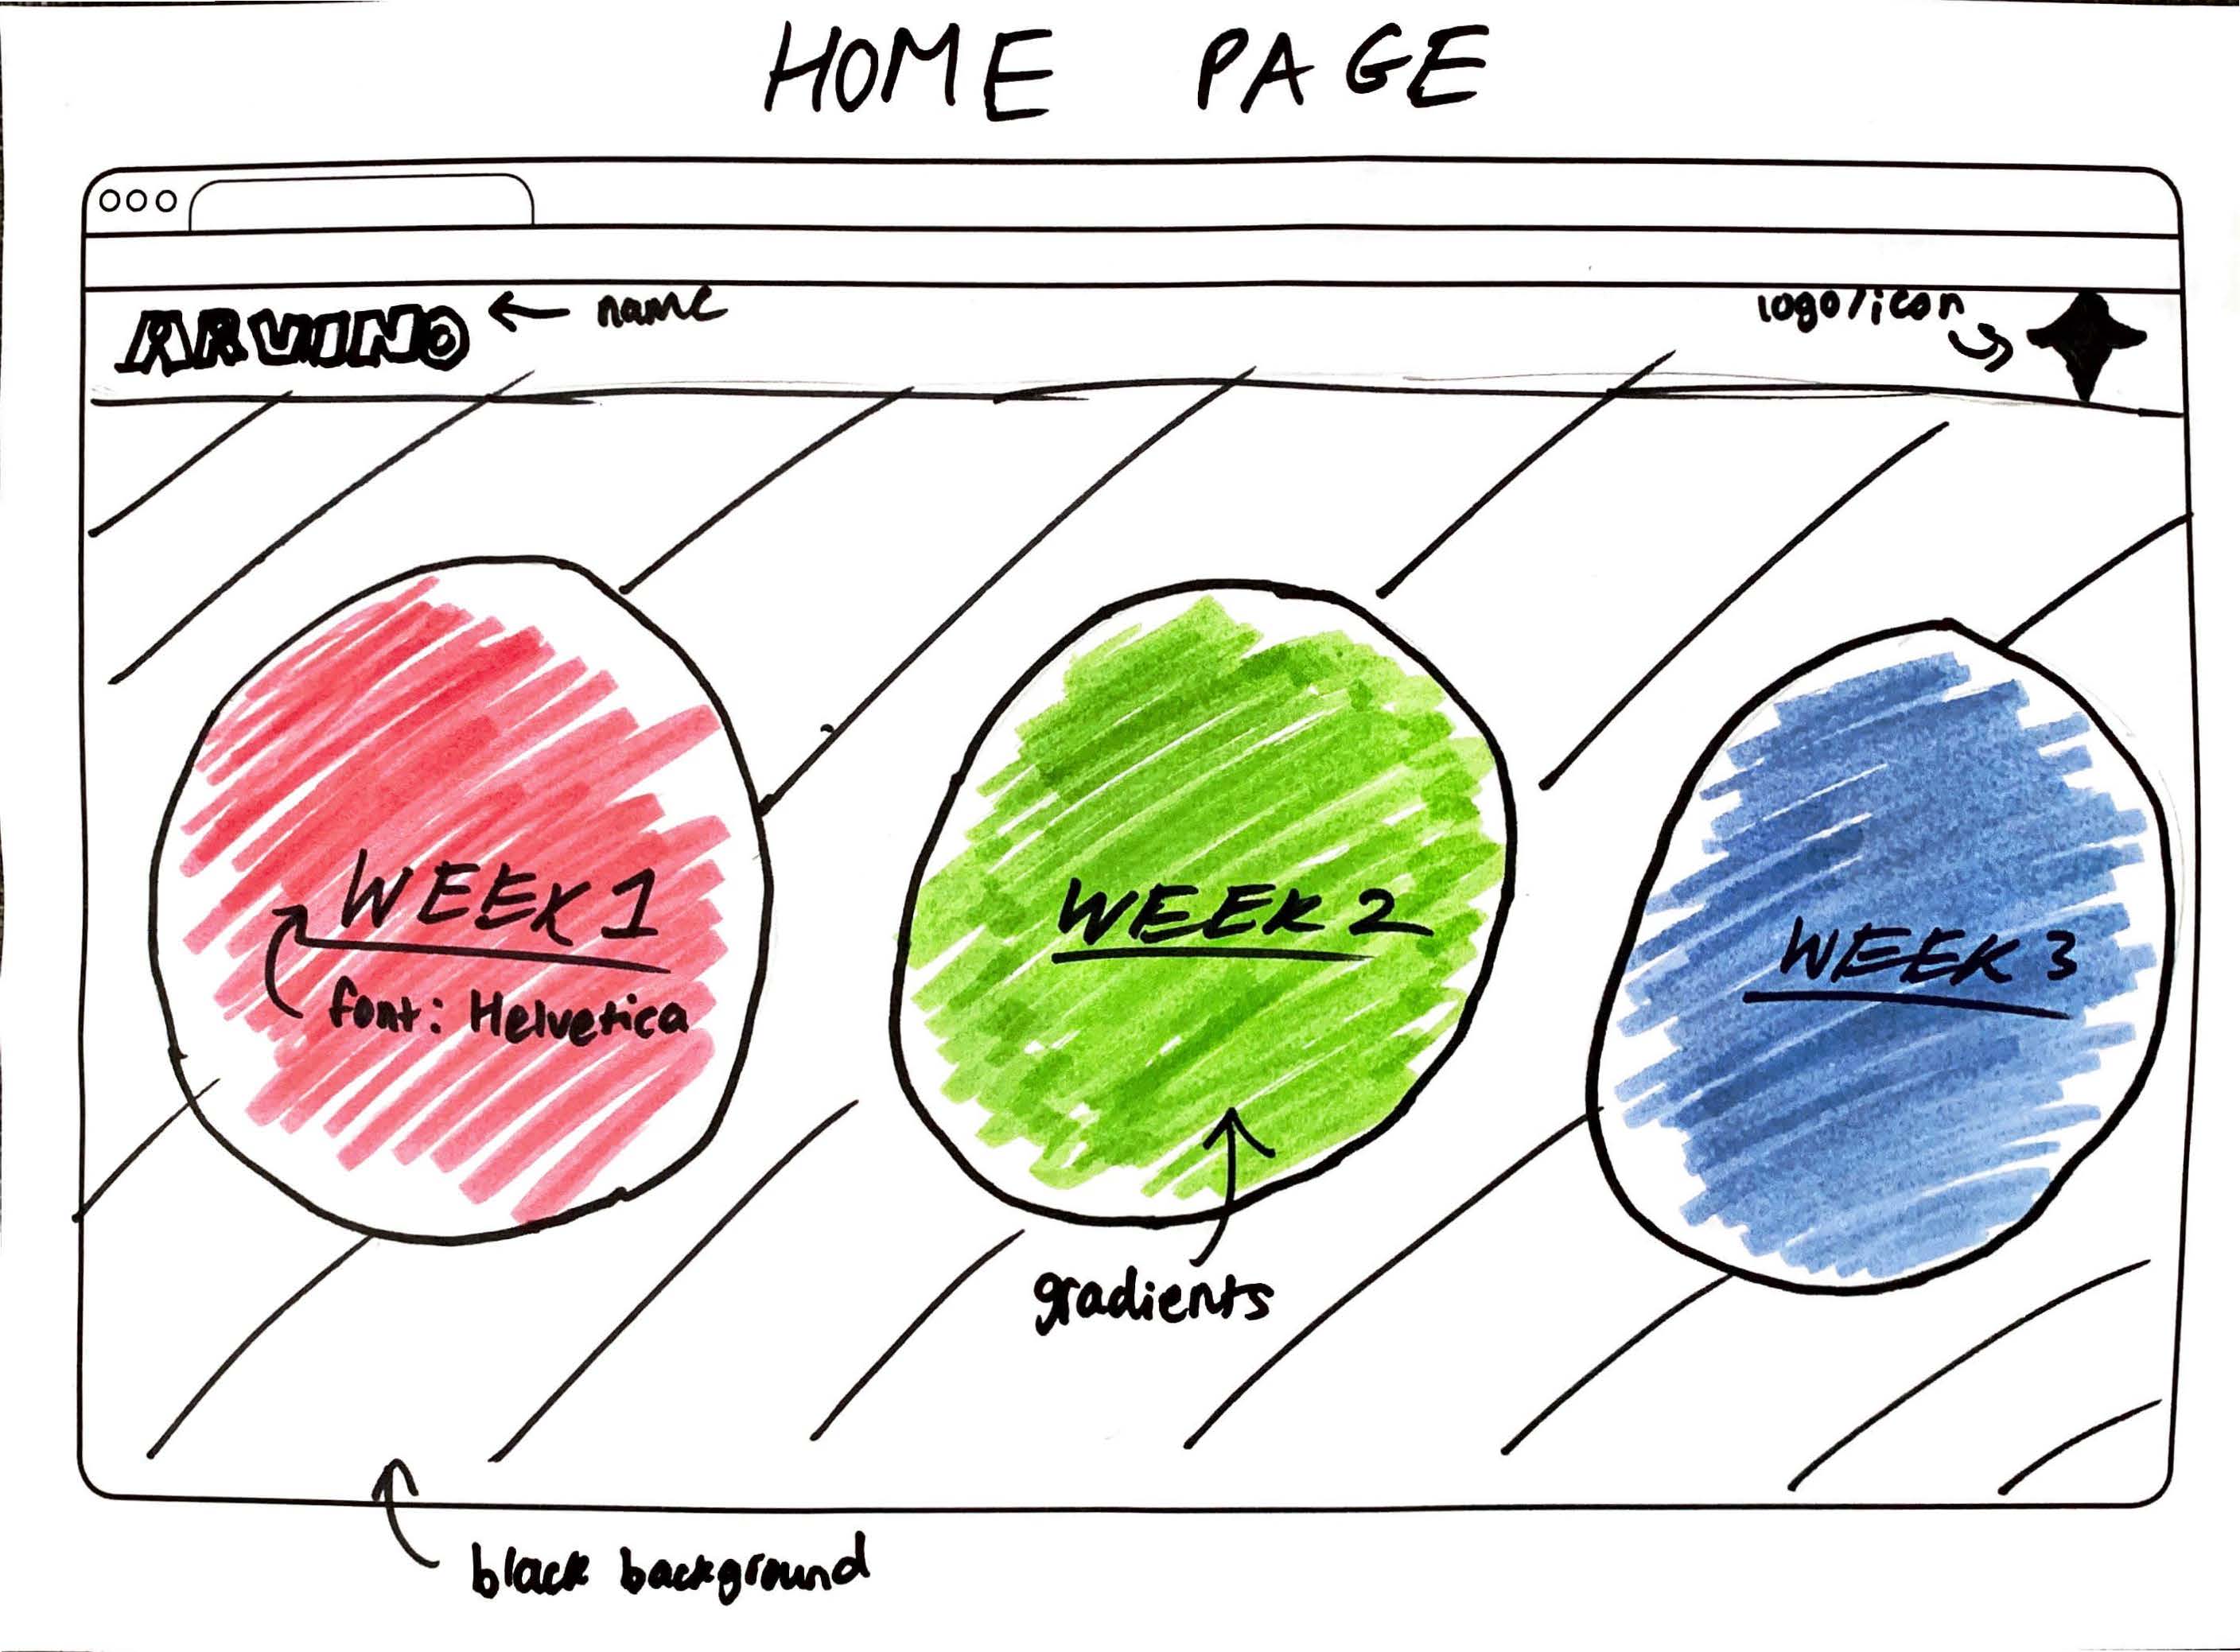 HOME PAGE
ARVIN®
← name
logo/icon
WEEK 1
font: Helvetica
WEEK 2
WEEK 3
gradients
black background